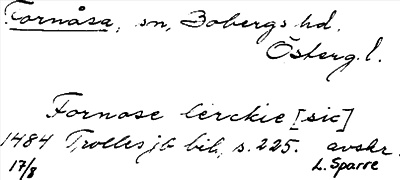 Fornåsa, sn, Bobergs hd.
Österg. l.
Fornose kerckie [sic]
1484 Trolles jb bih, s. 225. avskr.
17/8 L. Sparre